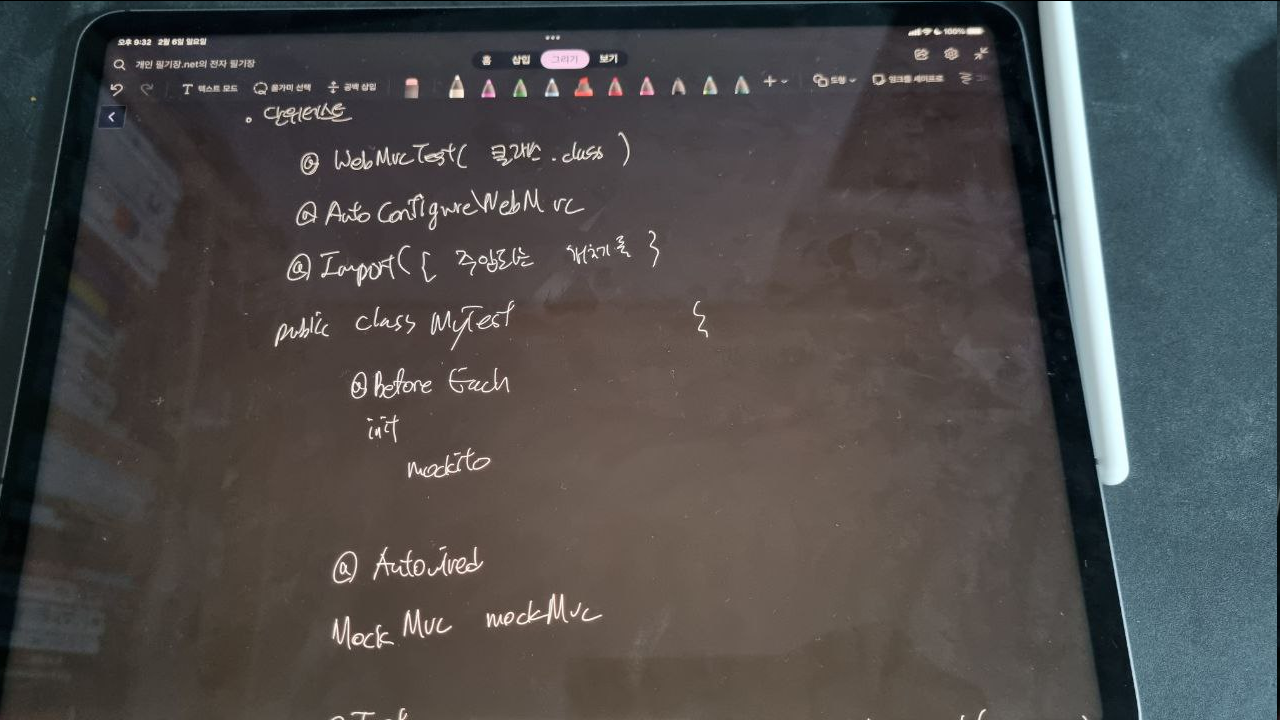 오후 9:32 2월 6일 일요일
100%
개인 필기장.net의 전자 필기장
홈 삽입 그리기 보기
텍스트 모드 올가미 선택 공백 삽입 도형 잉크를 셰이프로
• 단위테스트
@ WebMvcTest( 클래스.class )
@ AutoConfigureWebMvc
@ Import({ 주입되는 객체들 }
public class MyTest {
@ Before Each
init
mockito
@ Autowired
Mock Mvc mockMvc